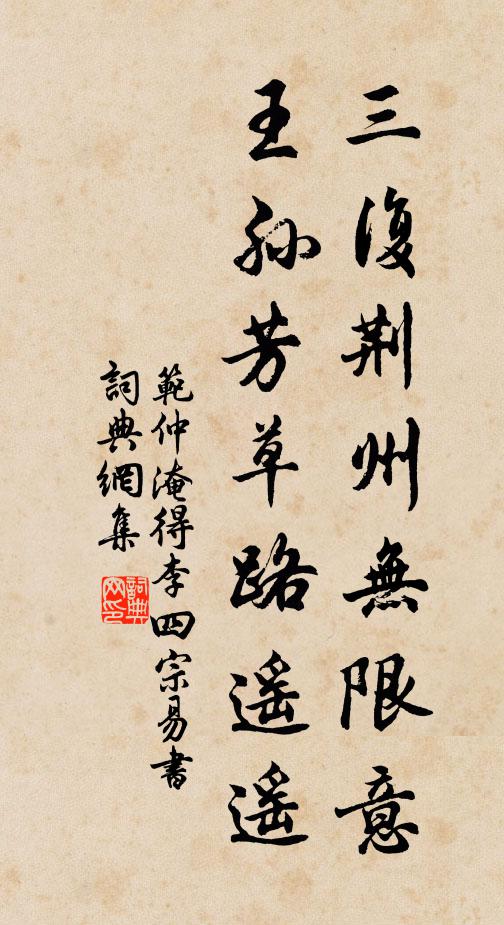 三復荆州無限意
王孙芳草路遥遥
範仲淹得李四宗易書
詞典網集
詞典网印